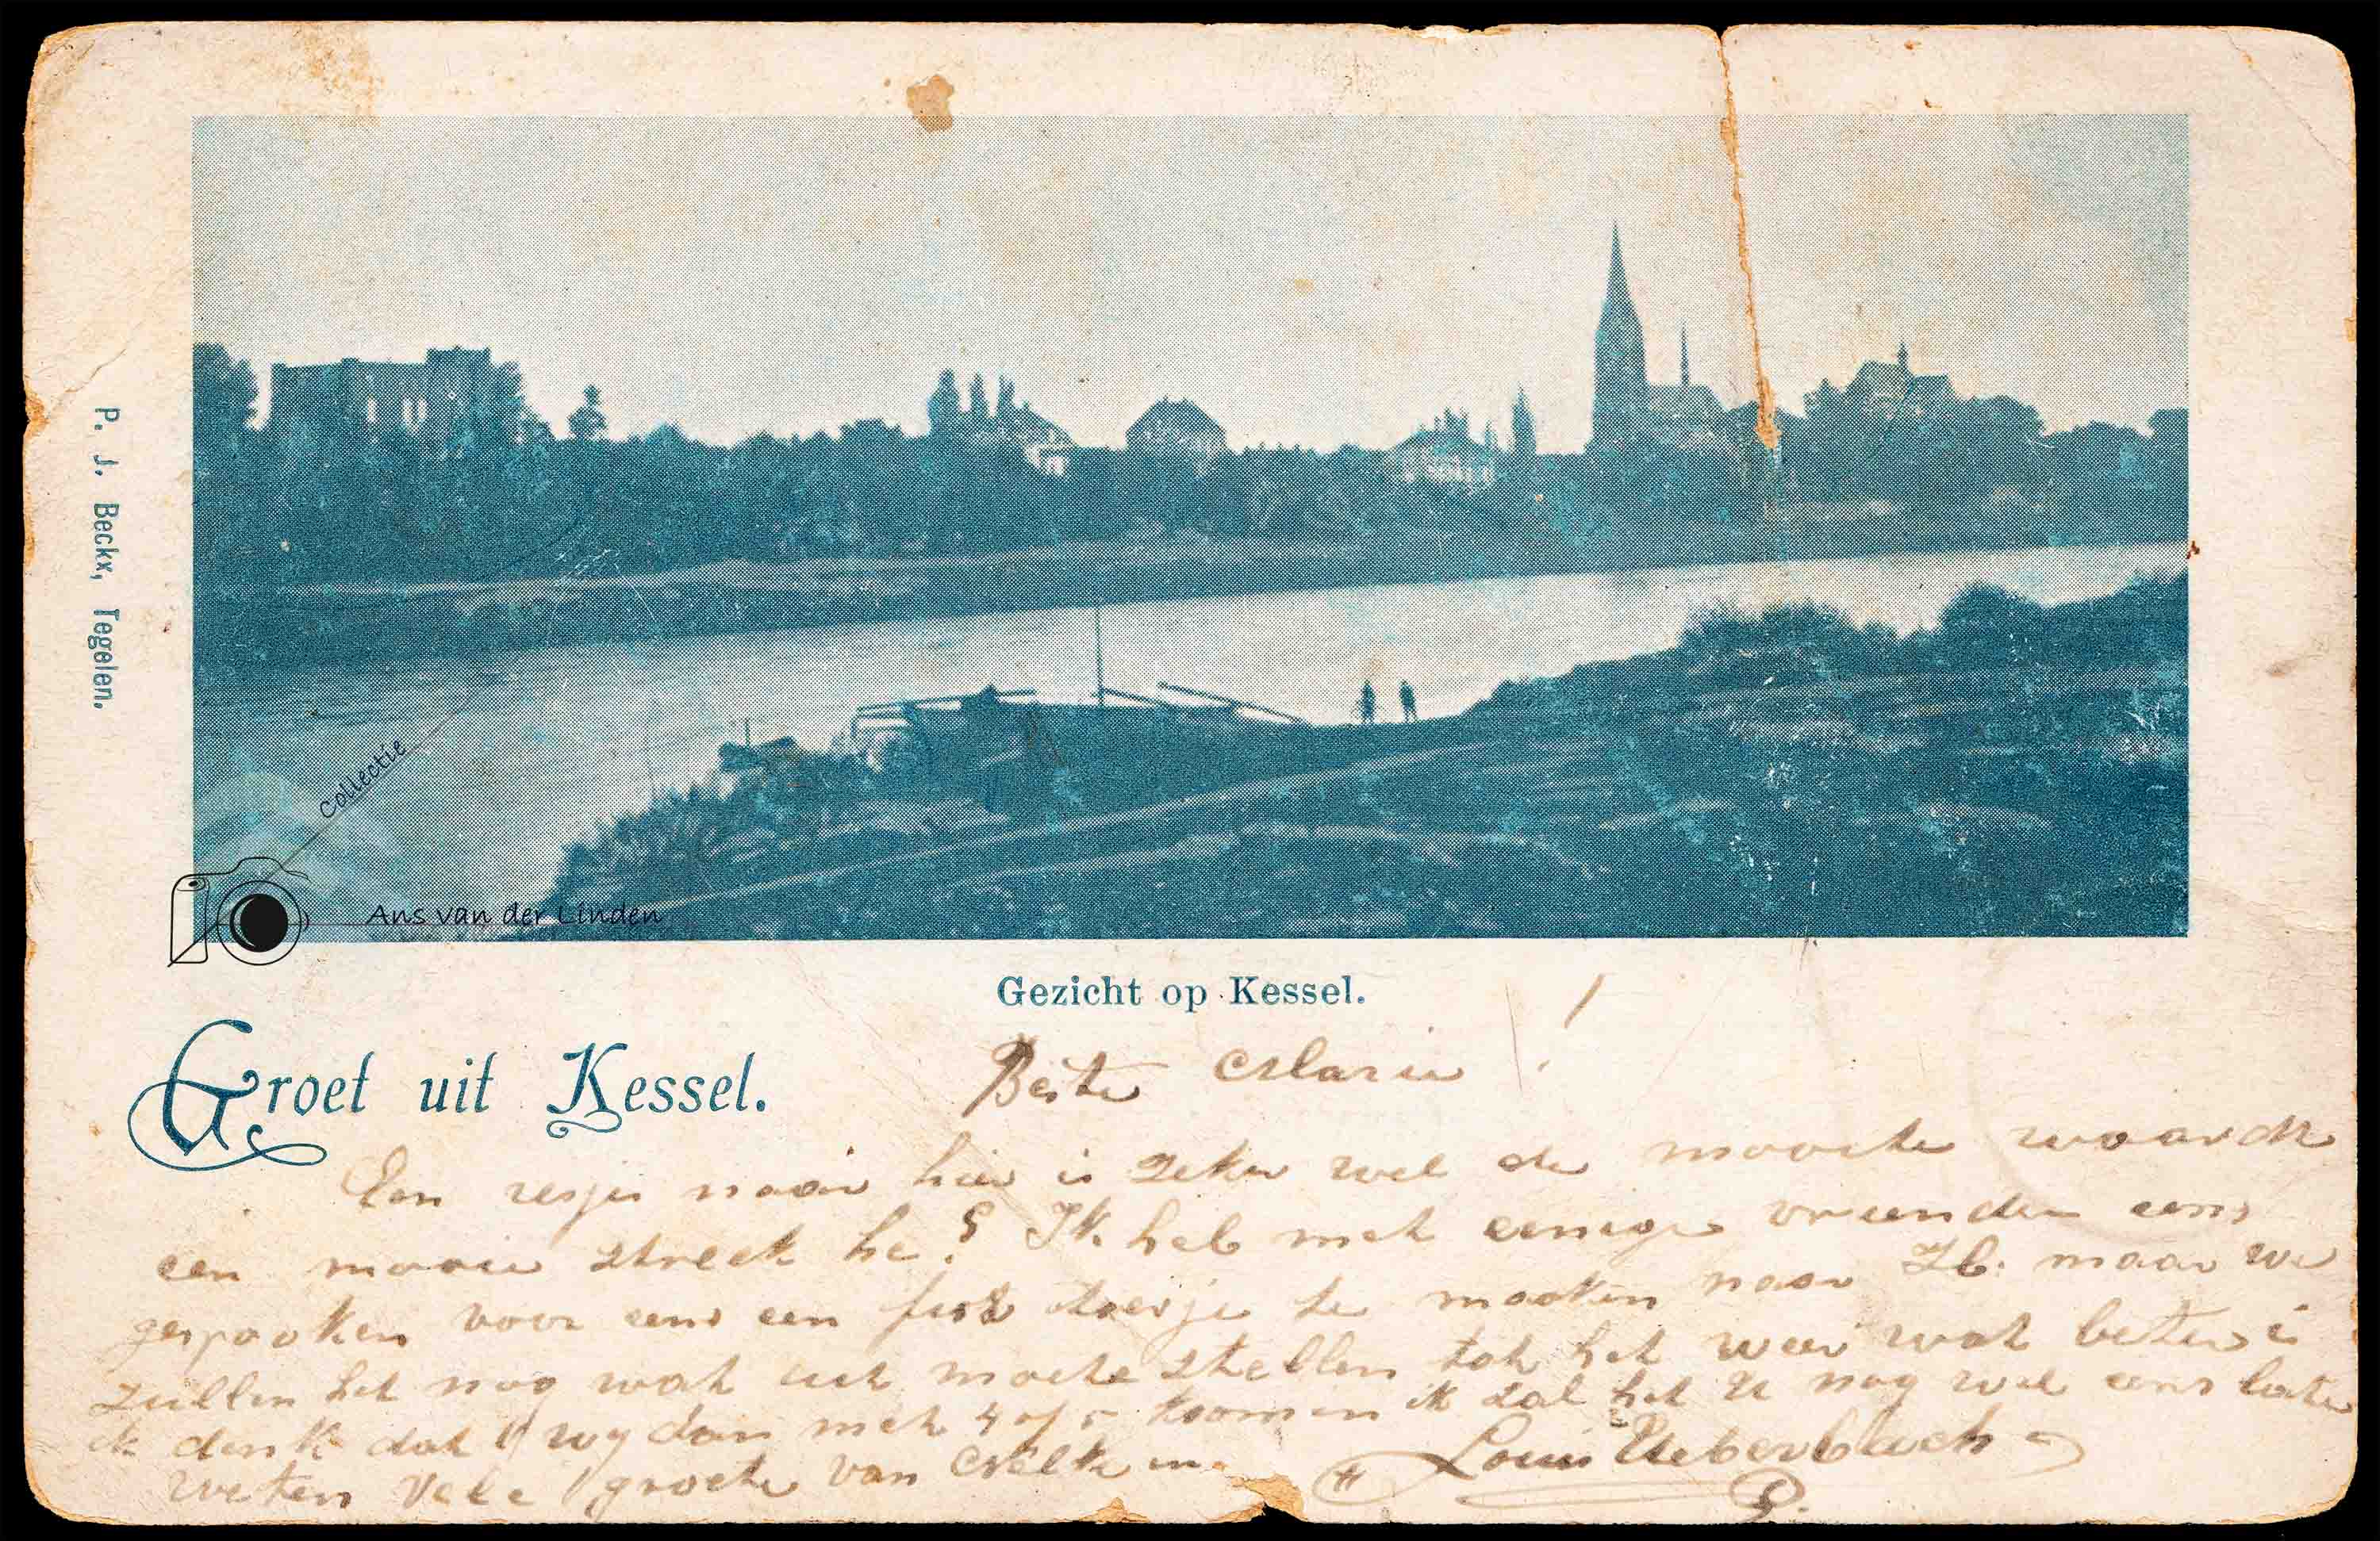 P. J. Beckx, Tegelen.
Collectie
Ans van der Linden
Gezicht op Kessel.
Groet uit Kessel.
Beste Marie !
Een resje naar hier is zeker wel de moeite waardt
een mooie streek he? Ik heb met eenige vrienden eens
gesprooken voor eens een fiets toerje te maaken naar H. maar we
zullen het nog wat uit moete stellen tot het weer wat beter is
ik denk dat wy dan met 4 of 5 koomen ik zal het U nog wel eens late
weten Vele groete van
Louis Ueberbach